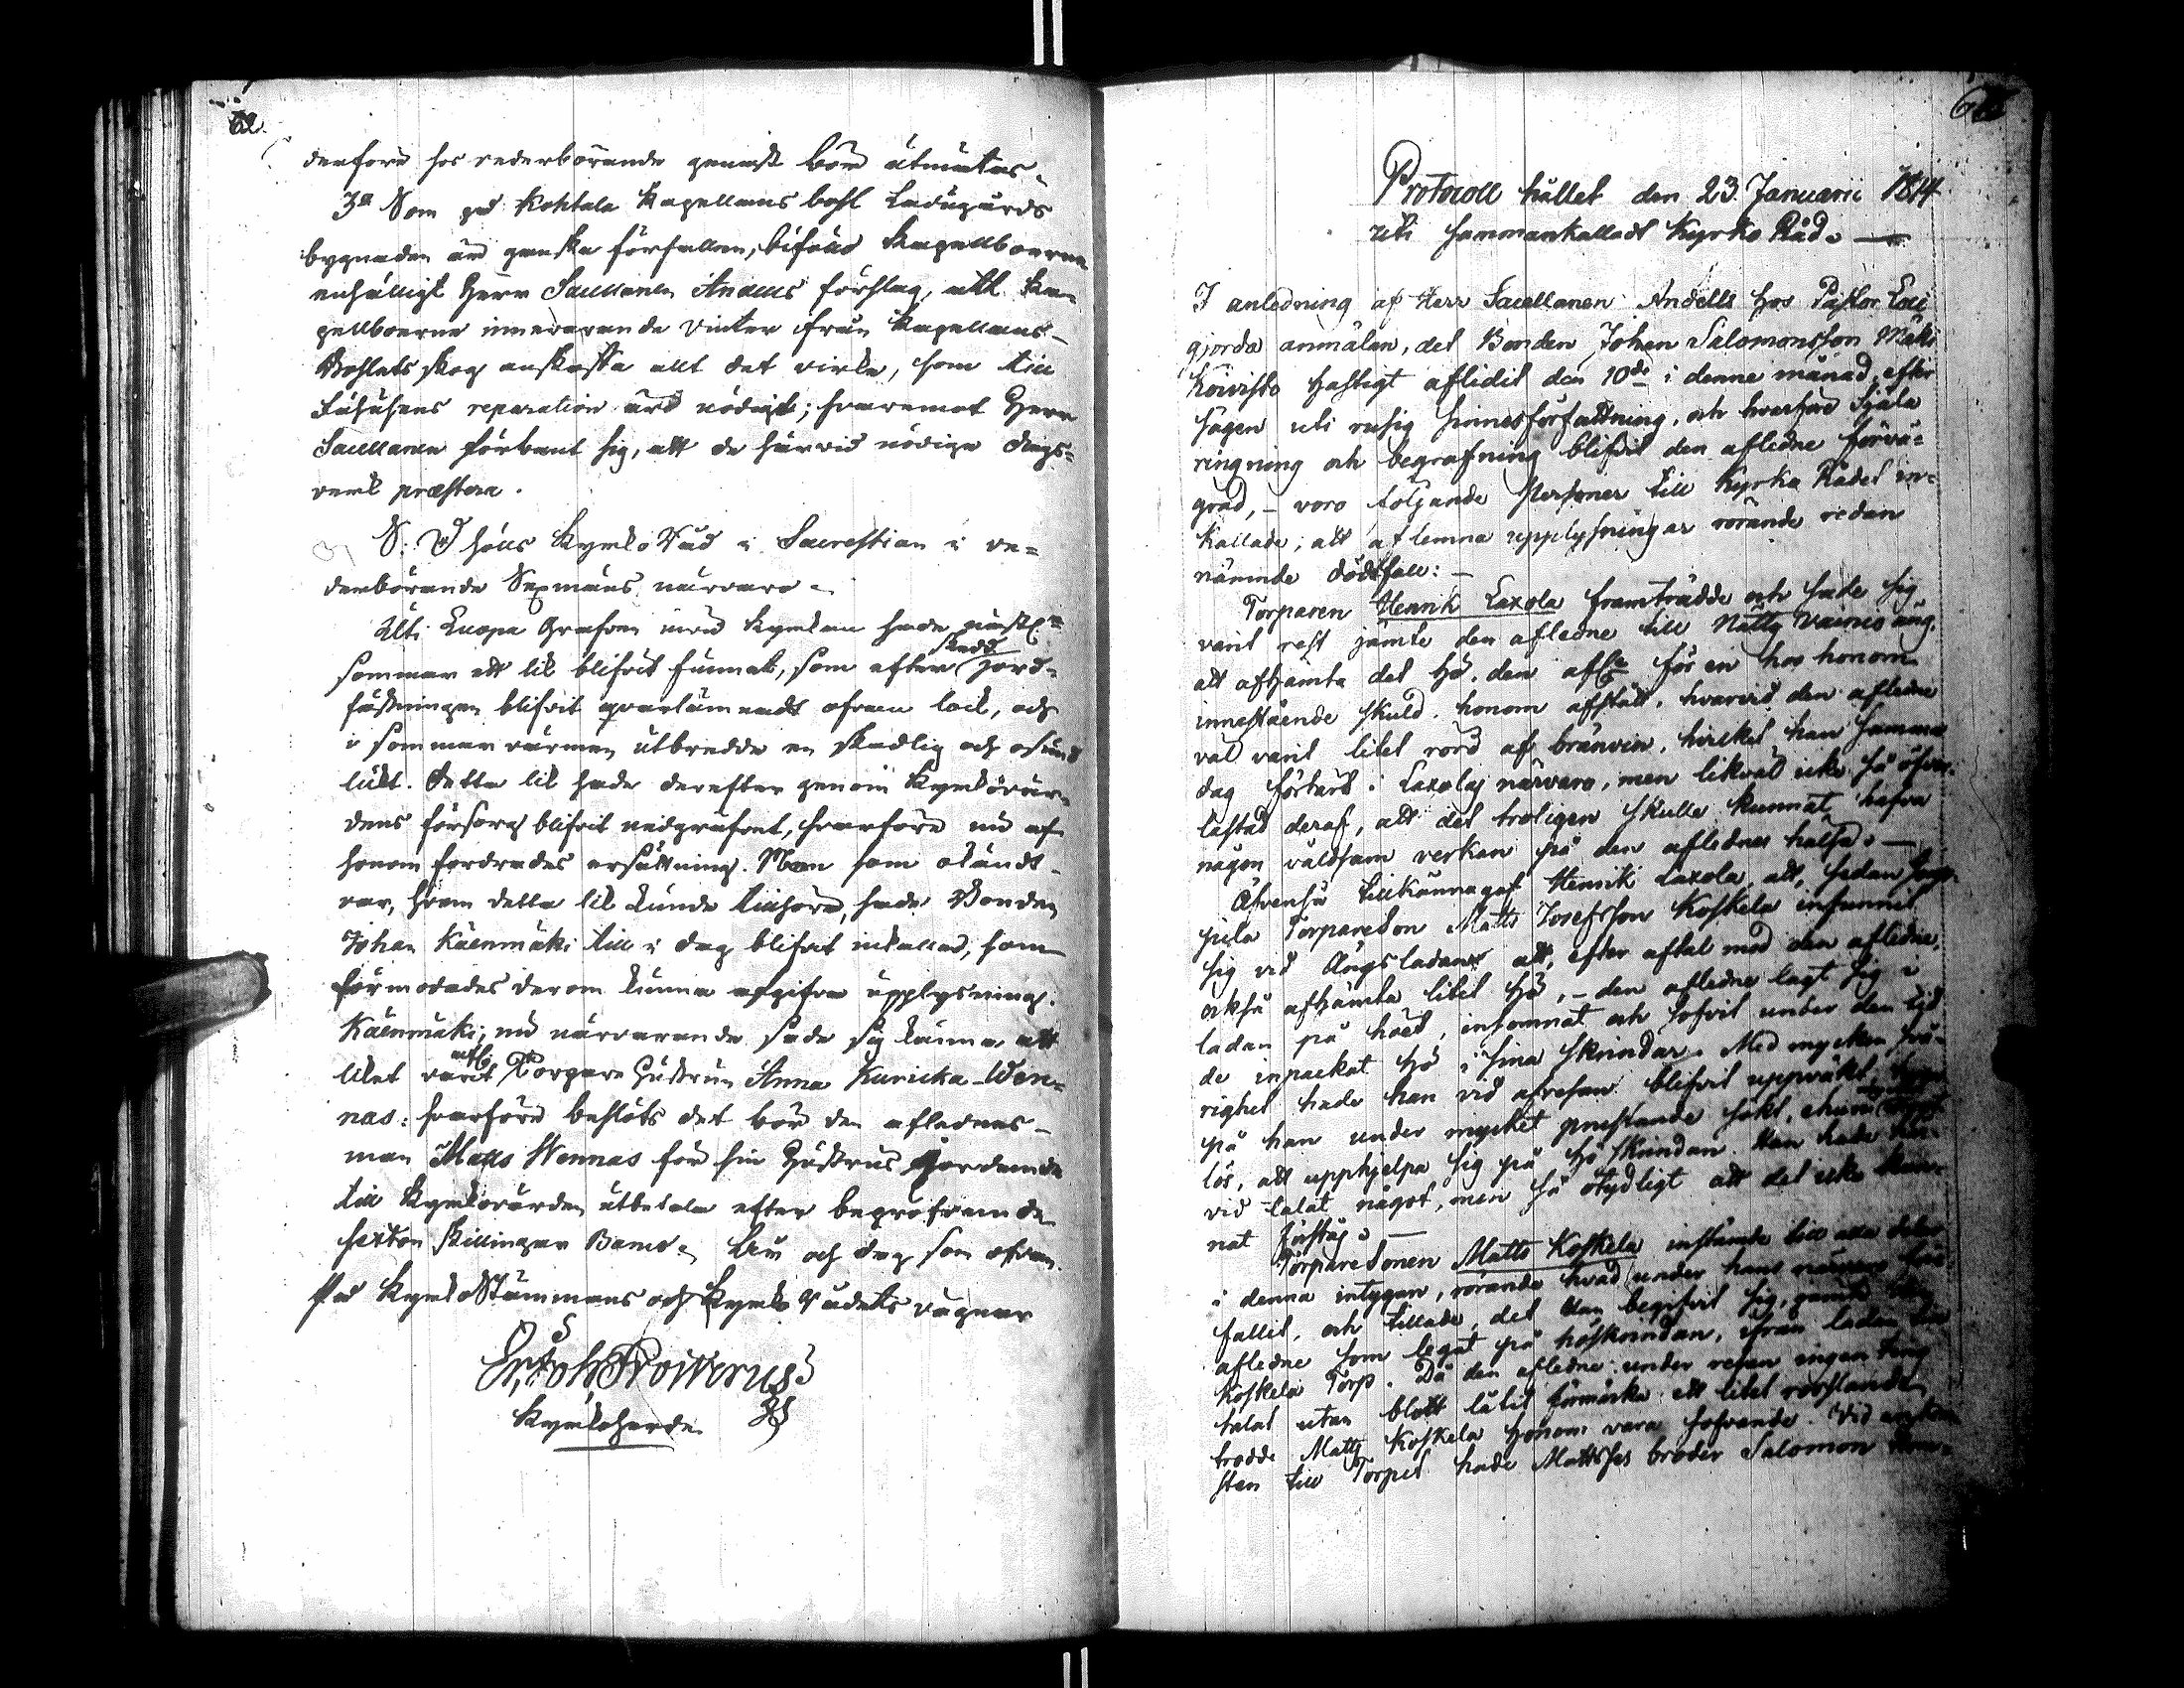 62.
derföre hos vederbörande genast bör utmätas.
3o Som på Kohtala Kapellans bohl Ladugårds
bygnaden är ganska förfallen, biföllo Kapellboerne
enhälligt Herr Sacellanen Andells förslag, att Ka-
pellboerne innevarande vinter ifrån Kapellans-
Bohlets skog anskaffa allt det virke, som till
Fähusens reparation är nödigt; hvaremot Herr
Sacellanen förbant sig, att de härvid nödiga dags-
verk præstera.
S. D. hölls Kyrko Råd i Sacrestian i ve-
derbörande Sexmäns närvaro.
Uti Kuopa Grafven invid Kyrkan hade nästl:
sommar ett lik blifvit funnit, som efter skedd jord-
fästningen blifvit qvarlämnadt ofvan lock, och
i sommar värmen utbredde en skadlig och osund
lukt. Detta lik hade derefter genom Kyrkovär-
dens försorg blifvit nedgräfvet, hvarföre nu af
honom fordrades ersättning. Men som okändt
var, hvem detta lik kunde tillhöra, hade Bonden
Johan Käenmäki till i dag blifvit inkallad, som
förmodades derom kunna afgifva upplysning.
Käenmäki, nu närvarande sade sig känna att
liket varit afl. Torpare Hustrun Anna Kuricka-Wen-
nas: hvarföre beslöts det bör den aflednas
man Matts Wennas för sin Hustrus
till Kyrkovärden utbetala efter begrafvande
sexton skillingar Banco. År och dag som ofvan.
På Kyrko Stämmans och Kyrko Rådets vägnar
Kyrkoherde.
Protocoll hållet den 23 Januarii 1814
uti sammankalladt Kyrko Råd.
I anledning af Herr Sacellanen Andells hos Pastor Loci
gjorda anmälan, det Bonden Johan Salomonsson Mäki
Koivisto hastigt aflidit den 10de i denne månad, efter
sägen uti rusig sinnesförfattning, och hvarföre Själa
ringning och begrafning blifvit den afledne förvä-
grad, - voro följande Personer till Kyrko Rådet in-
kallade, att aflemna upplysningar rörande redan
nämnde dödsfall: -
Torparen Henrik Laxola framträdde och sade sig
varit rest jämte den afledne till Nätty Vainio äng,
att afhämta det hö, den afl:e för en hos honom
innestående skuld, honom afstått, hvarvid den afledne
väl varit litet rörd af brännvin, hvilket han samma
dag förtärt i Laxolas närvaro, men likväl icke så öfver-
lastad deraf, att det troligen skulle kunnat hafva
någon våldsam verkan på den aflednes hälsa. -
Äfvenså tillkännagaf Henrik Laxola, att, sedan
Torpare Son Matts Josefsson Koskela infunnit
sig vid Ängsladan att, efter aftal med den afledne,
också afhämta litet hö, - den afledne lagt sig i
ladan på höet, insomnat och sofvit under den tid
de inpackat hö i sina skrindor. Med mycken svå-
righet hade han vid afresan blifvit uppväckt,
på han under mycket prustande sökt, ehuru
lös, att upphjelpa sig på hö skrindan. Han hade här-
vid talat något, men så otydligt att det icke kun-
nat förstås. -
Torpare Sonen Matts Koskela instämde till alla delar
i denna intygan, rörande hvad under hans närvaro före
fallit, och tillade, det han begifvit sig, jämte den
afledne som legat på höskrindan, ifrån ladan till
Koskela Torp. Då den afledne under resan ingen ting
talat utan blott låtit förmärka ett litet rosslande
trodde Matts Koskela honom vara sofvande. Vid ankom-
sten till Torpet hade Mattsses broder Salomon